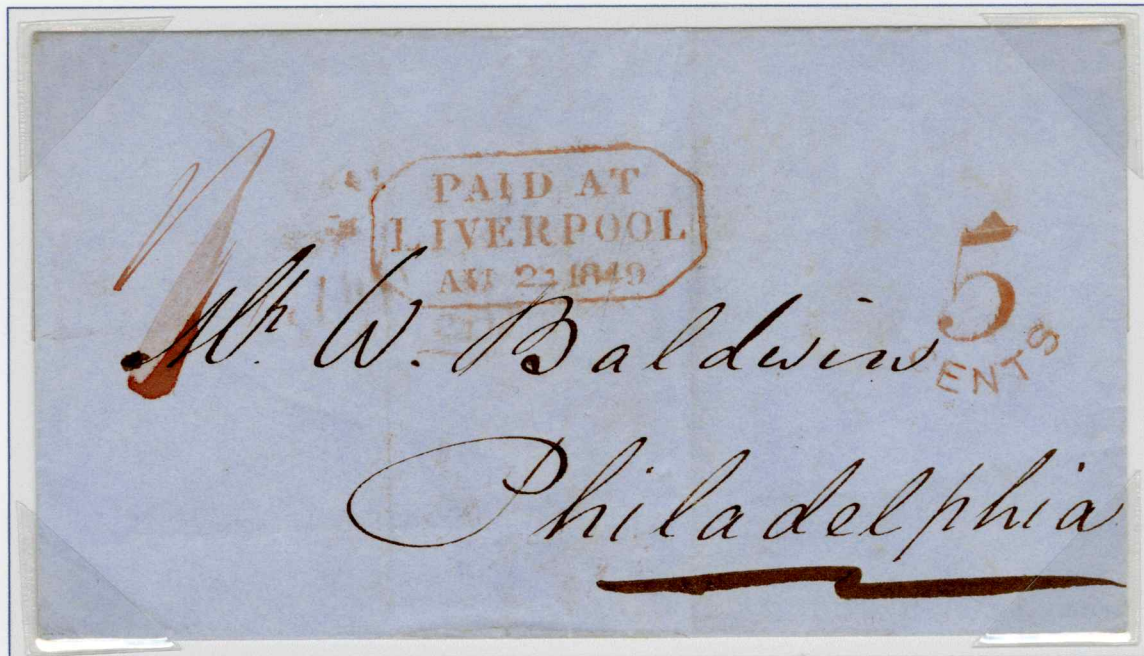 PAID AT
LIVERPOOL
AU 2 1849
5
CENTS
Mr. W. Baldwin
Philadelphia